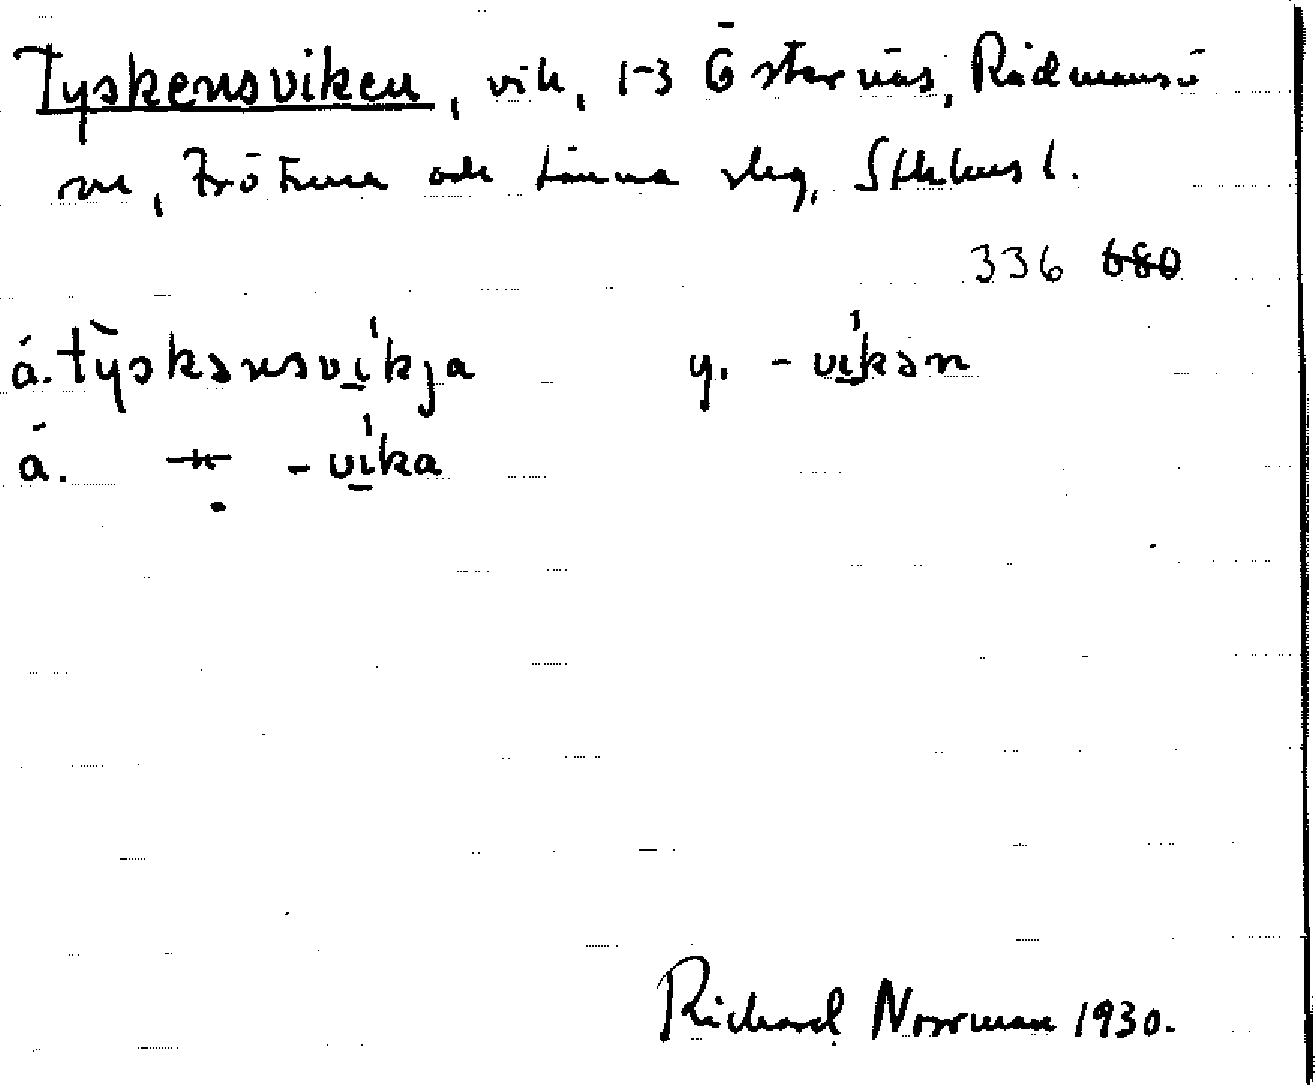 Tyskensviken, vik, 1-3 Östernäs, Rådmansö
sn, Frötuna och Länna slg, Sthlms l.
336 680
á. tỳskənsvi̱kja y. -vi̱kən
á. -"- -vi̱ka
Richard Norrman 1930.